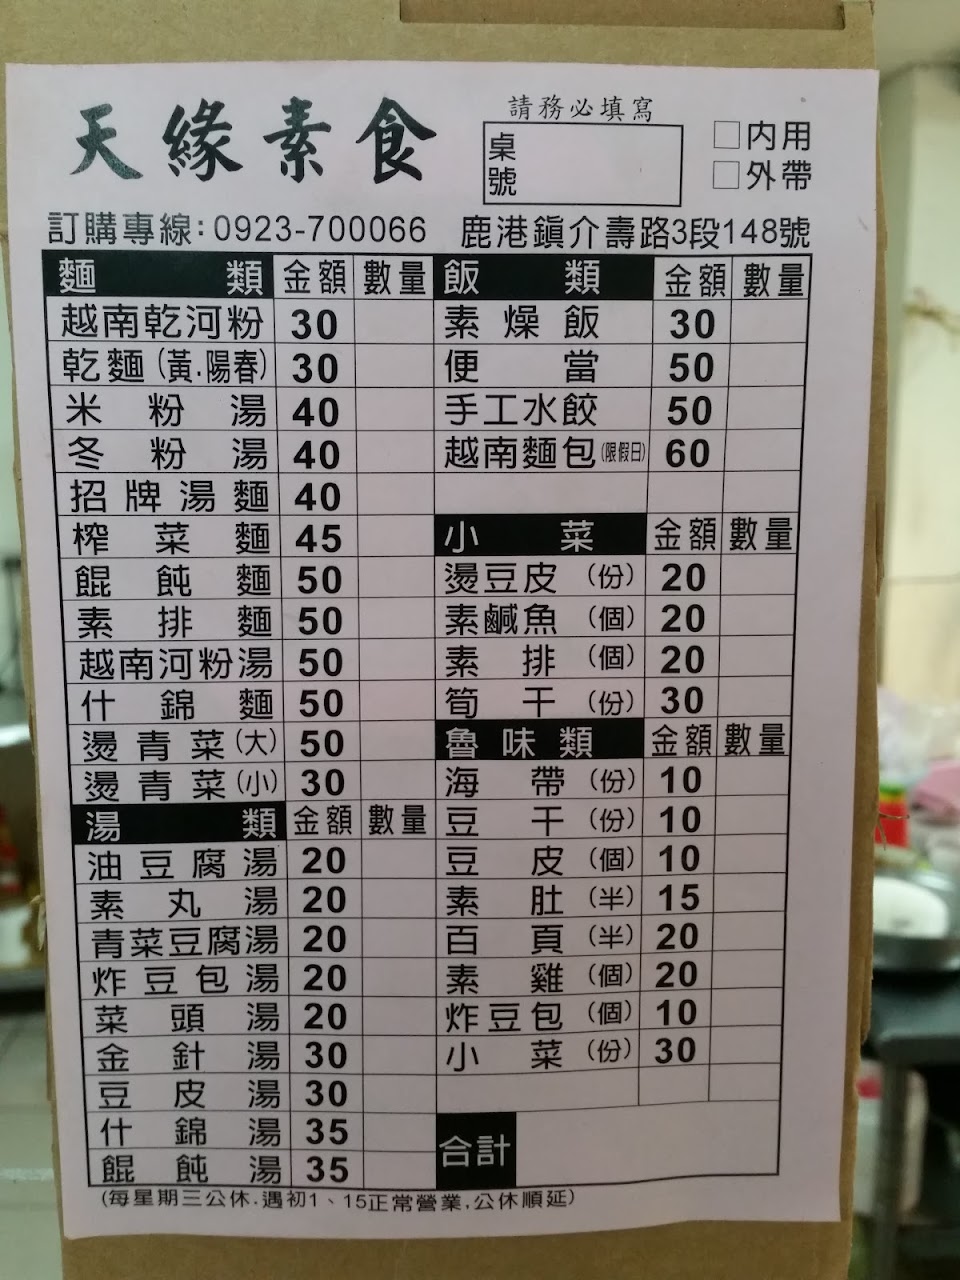 天緣素食
請務必填寫
桌號
□內用
□外帶
訂購專線:0923-700066 鹿港鎮介壽路3段148號
麵類 金額 數量
越南乾河粉 30
乾麵(黃.陽春) 30
米粉湯 40
冬粉湯 40
招牌湯麵 40
榨菜麵 45
餛飩麵 50
素排麵 50
越南河粉湯 50
什錦麵 50
燙青菜(大) 50
燙青菜(小) 30
湯類 金額 數量
油豆腐湯 20
素丸湯 20
青菜豆腐湯 20
炸豆包湯 20
菜頭湯 20
金針湯 30
豆皮湯 30
什錦湯 35
餛飩湯 35
飯類 金額 數量
素燥飯 30
便當 50
手工水餃 50
越南麵包(限假日) 60
小菜 金額 數量
燙豆皮(份) 20
素鹹魚(個) 20
素排(個) 20
筍干(份) 30
魯味類 金額 數量
海帶(份) 10
豆干(份) 10
豆皮(個) 10
素肚(半) 15
百頁(半) 20
素雞(個) 20
炸豆包(個) 10
小菜(份) 30
合計
(每星期三公休.遇初1、15正常營業,公休順延)